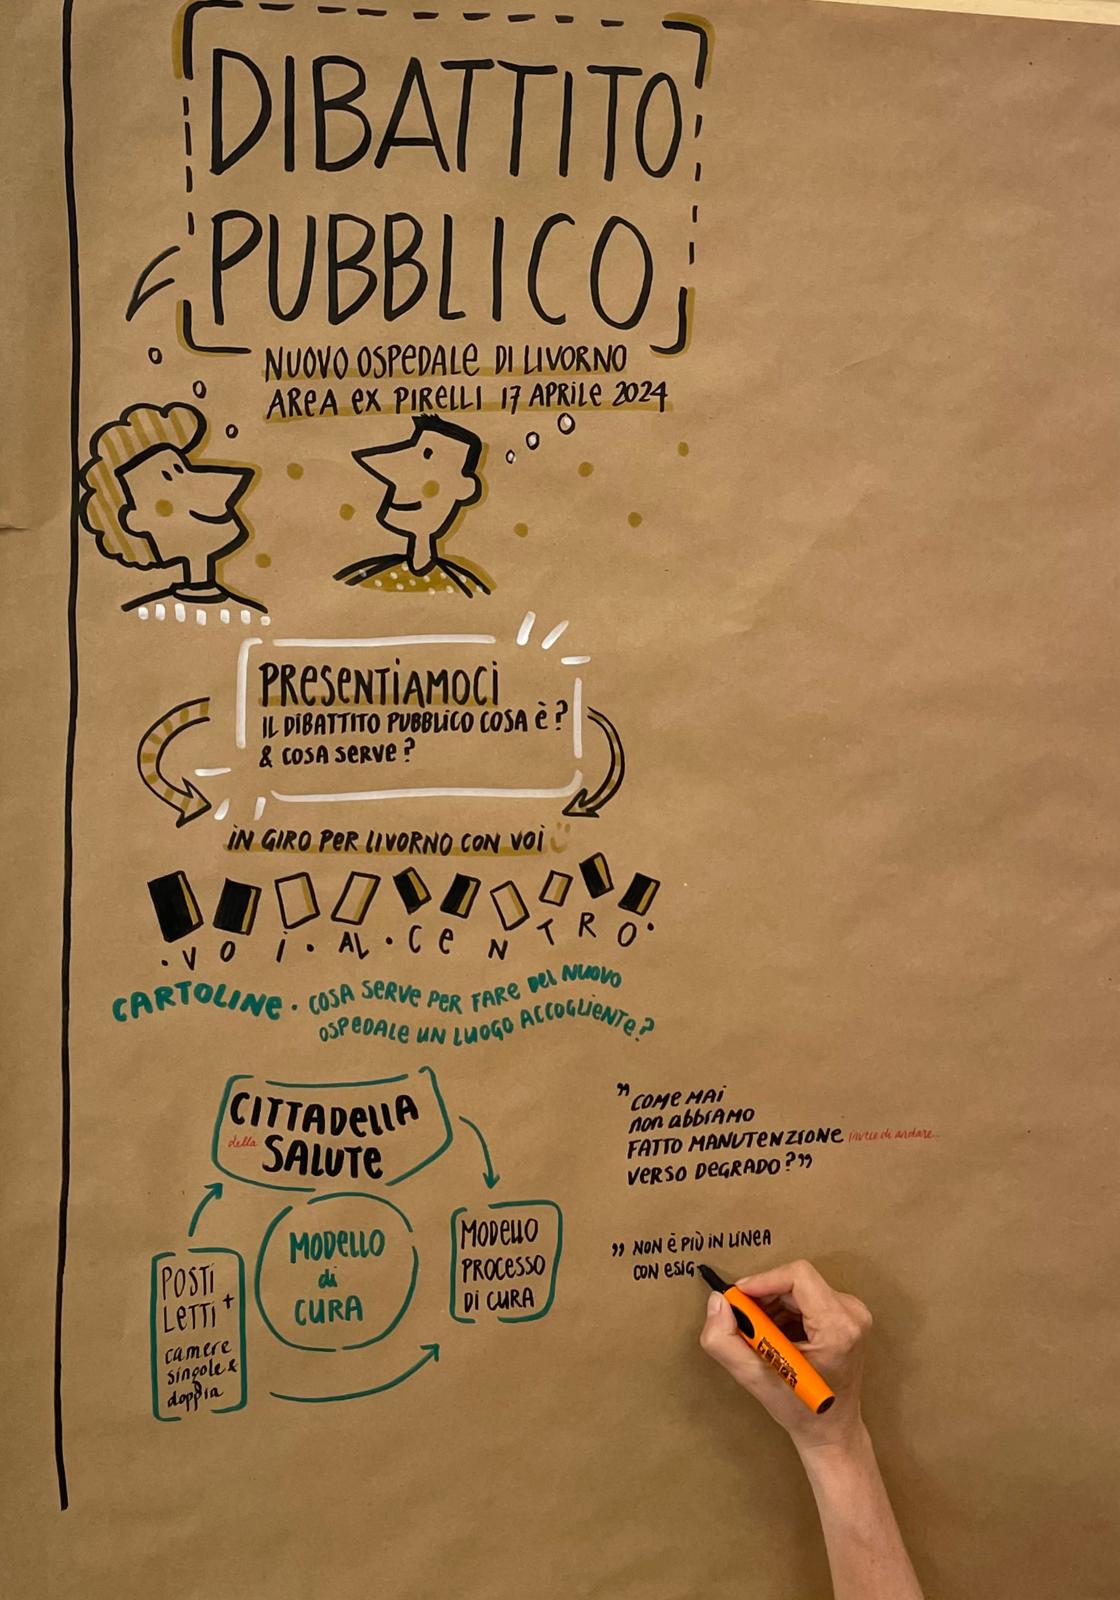 DIBATTITO
PUBBLICO
NUOVO OSPEDALE DI LIVORNO
AREA EX PIRELLI 17 APRILE 2024
PRESENTIAMOCI
IL DIBATTITO PUBBLICO COSA È?
& COSA SERVE?
IN GIRO PER LIVORNO CON VOI
• VOI • AL • CENTRO •
CARTOLINE • COSA SERVE PER FARE DEL NUOVO
OSPEDALE UN LUOGO ACCOGLIENTE?
CITTADELLA
della SALUTE
MODELLO
di
CURA
POSTI
LETTI +
camere
singole &
doppia
MODELLO
PROCESSO
DI CURA
"COME MAI
non abbiamo
FATTO MANUTENZIONE invece di andare
VERSO DEGRADO?"
" NON È PIÙ IN LINEA
CON ESIG